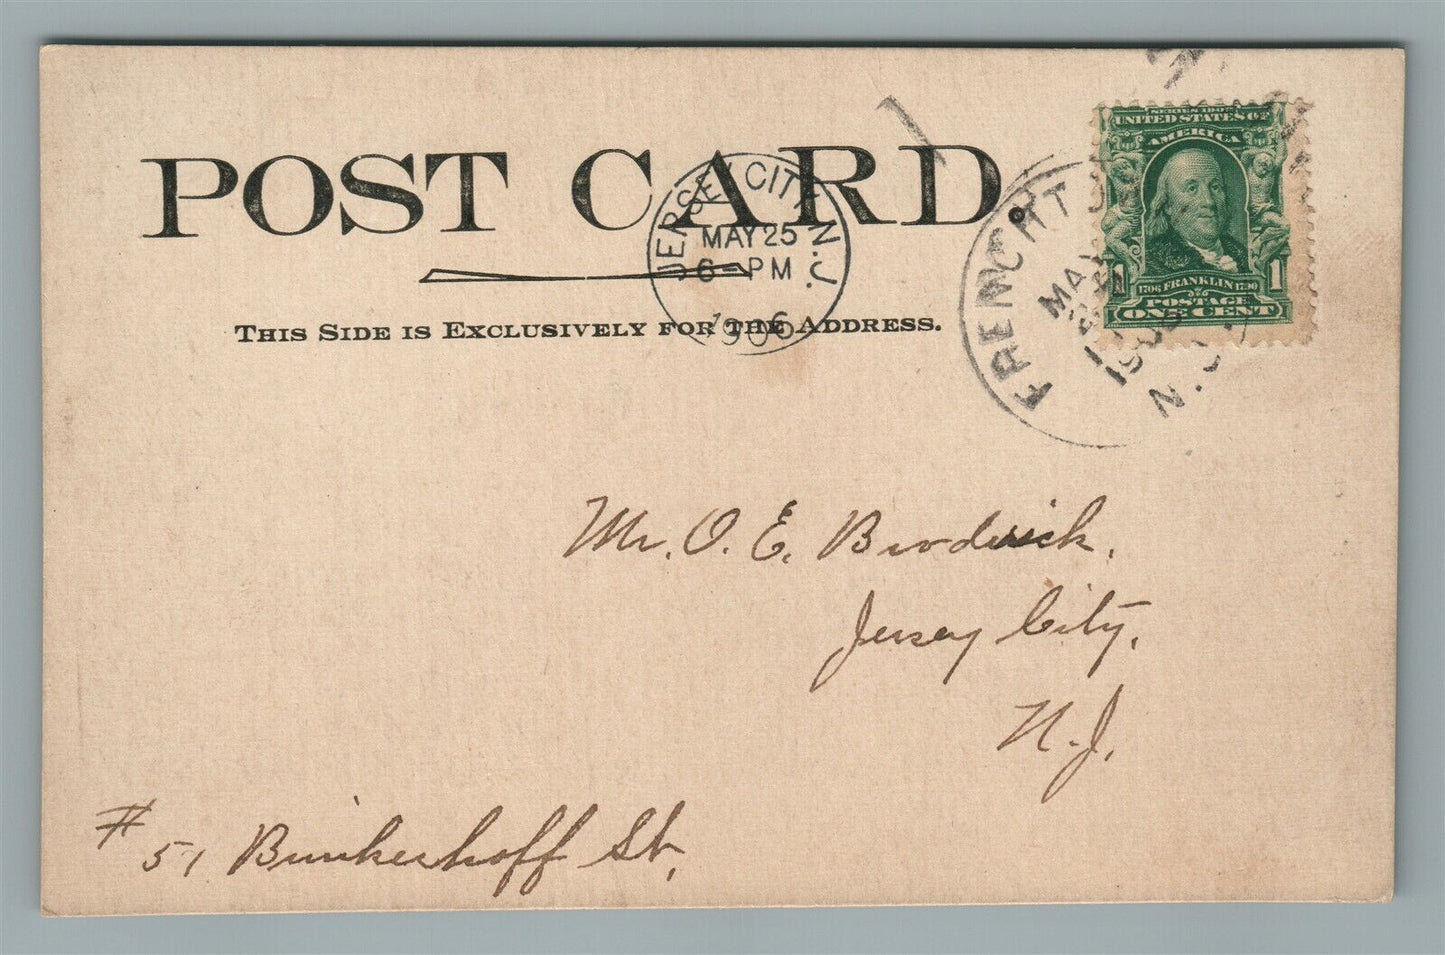 POST CARD.
THIS SIDE IS EXCLUSIVELY FOR THE ADDRESS.
JERSEY CITY, N.J.
MAY 25
6 - PM
1906
FREMONT
MAY
N.
SERIES 1902
UNITED STATES OF
AMERICA
1706 FRANKLIN 1790
POSTAGE
1 ONE CENT 1
Mr. O. E. Broderick,
Jersey City,
N.J.
# 51 Bunkerhoff St,